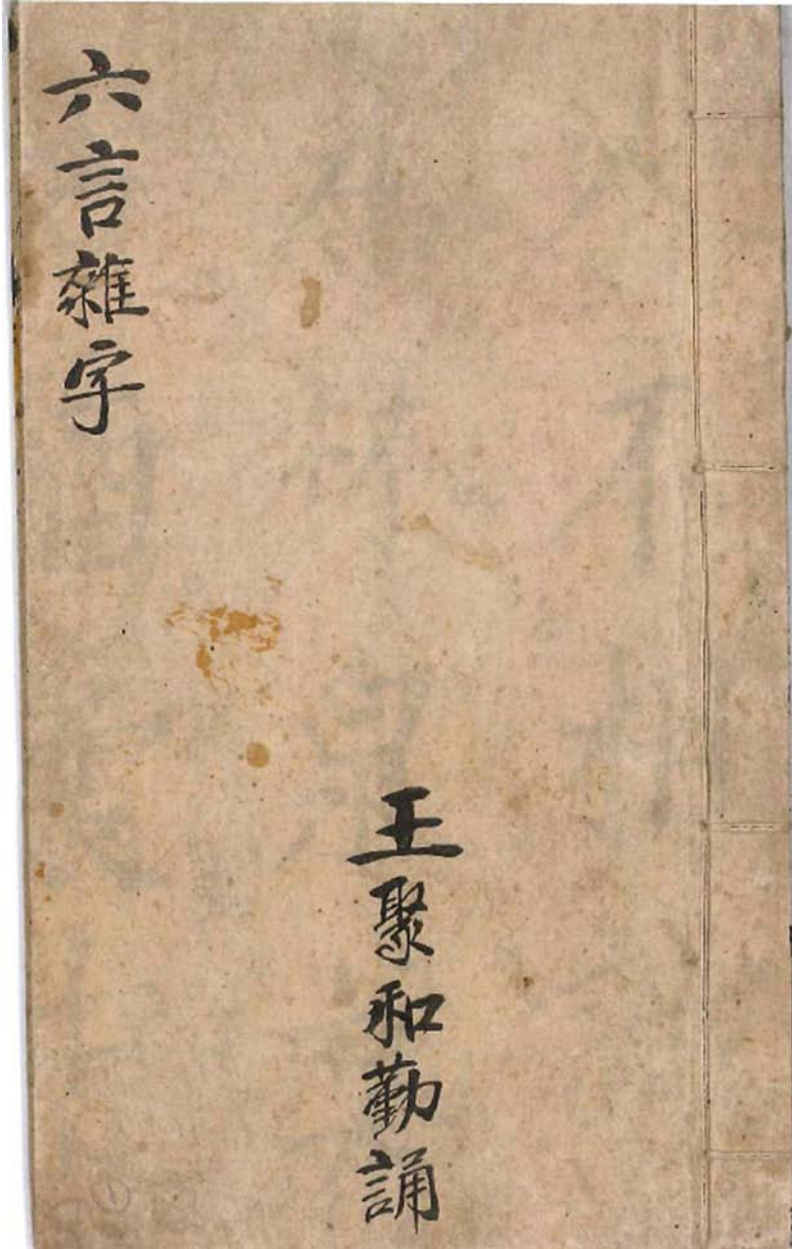 六言雜字
王聚和勤誦
①